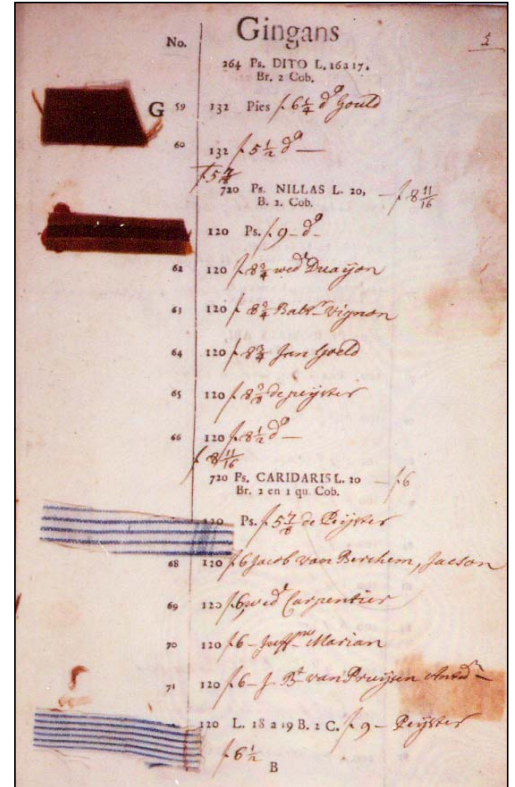 Gingans
No.
264 Ps. DITO L. 16 a 17.
Br. 2 Cob.
G 59 132 Pies f 6 1/4 d° Gould
60 132 f 5 1/2 d° —
720 Ps. NILLAS L. 20, — f 8 11/16
B. 2. Cob.
120 Ps. f 9 - d°
62 120 f 8 3/4 wed Duaijon
63 120 f 8 3/4 Vignon
64 120 f 8 3/4 Jan Goeld
65 120 de peijster
66 120 f 8 1/2 d° —
f 8 11/16
720 Ps. CARIDARIS L. 20 — f 6
Br. 2 en 1 qu. Cob.
120 Ps. f 5 7/8 de Peijster
68 120 f 6 Jacob van Berchem, Jacson
69 120 f 6 wed Carpentier
70 120 f 6 - Marian
71 120 f 6 - J. Bt van Pruijsen
120 L. 18 a 19 B. 2 C. f 9 - Peijster
f 6 1/2
B